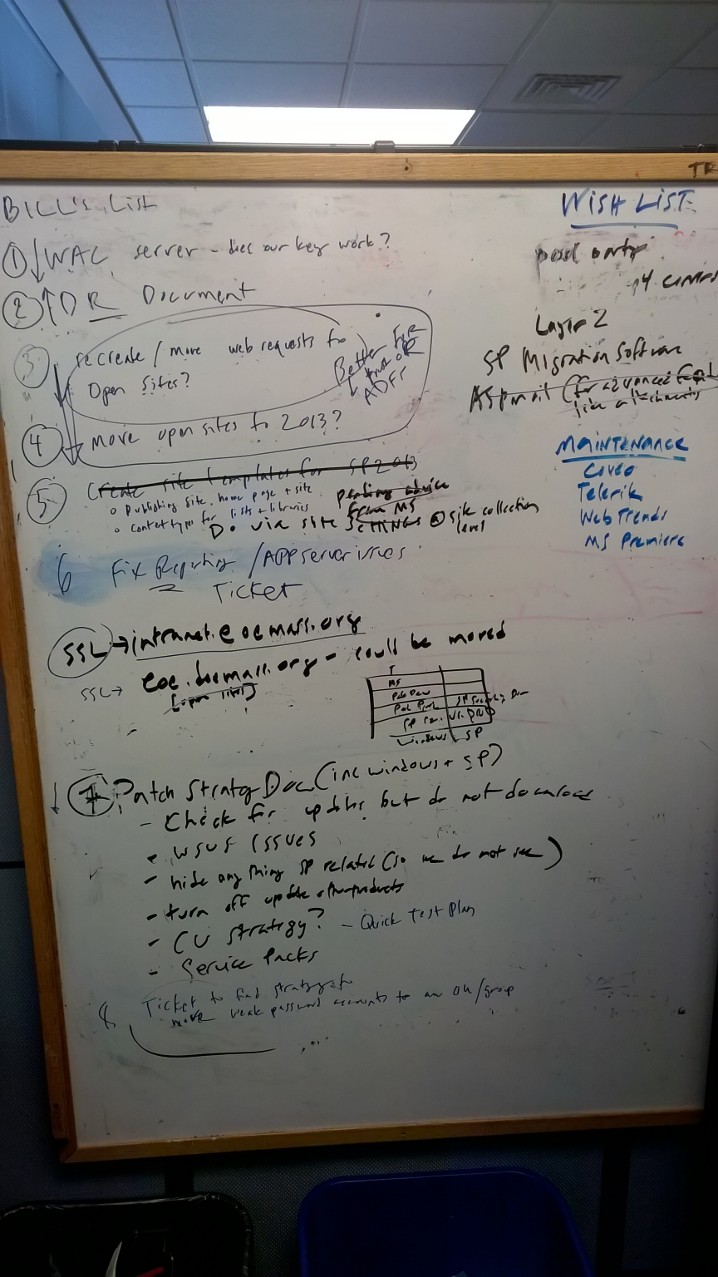 TR
BILL'S LIST
1 ↓ WAC server - does our key work?
2 ↑ DR Document
3 recreate / move web requests to
Open Sites?
Better for
ADFS
4 move open sites to 2013?
5 Create site templates for SP 2013
○ Publishing site, home page + site
pending advice
from MS
○ Content types for lists + libraries
Do via site settings @ site collection
level
6 Fix Reporting / APP server issues
Ticket
SSL → intranet.eoemass.org
SSL → eoe.doemass.org - could be moved
[open sites]
MS
Windows SP
↓ 7 Patch Strategy Doc (inc windows + SP)
- Check for updates but do not download
- WSUS ISSUES
- hide any thing SP related (so we do not see)
- turn off update other products
- CU strategy? - Quick Test Plan
- Service Packs
8 Ticket to find strategy to
move weak password accounts to an OU/group
WISH LIST
Layer 2
SP Migration Software
(for advanced
like attachments
MAINTENANCE
Coveo
Telerik
WebTrends
MS Premiere